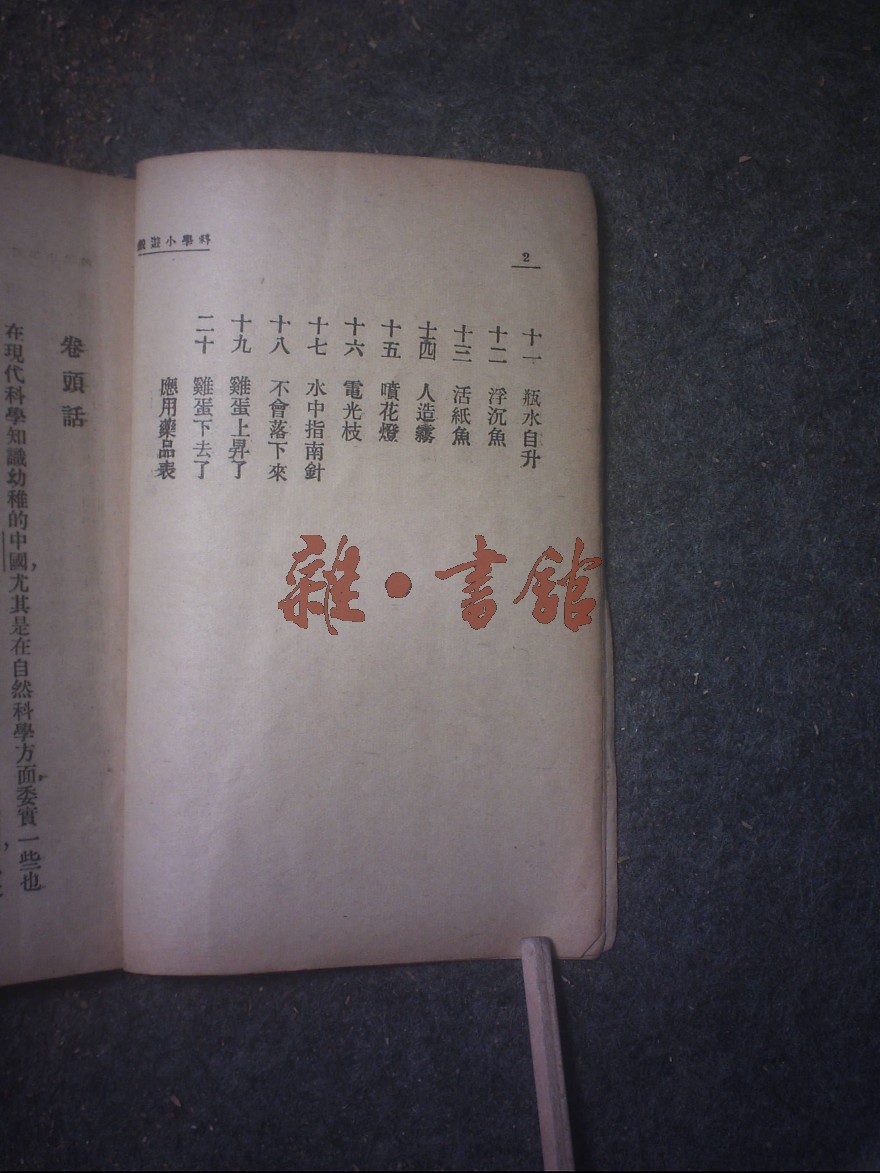 2
科學小遊戲
十一 瓶水自升
十二 浮沉魚
十三 活紙魚
十四 人造霧
十五 噴花燈
十六 電光枝
十七 水中指南針
十八 不會落下來
十九 雞蛋上昇了
二十 雞蛋下去了
應用藥品表
卷頭話
在現代科學知識幼稚的中國，尤其是在自然科學方面委實一些也
雜•書館